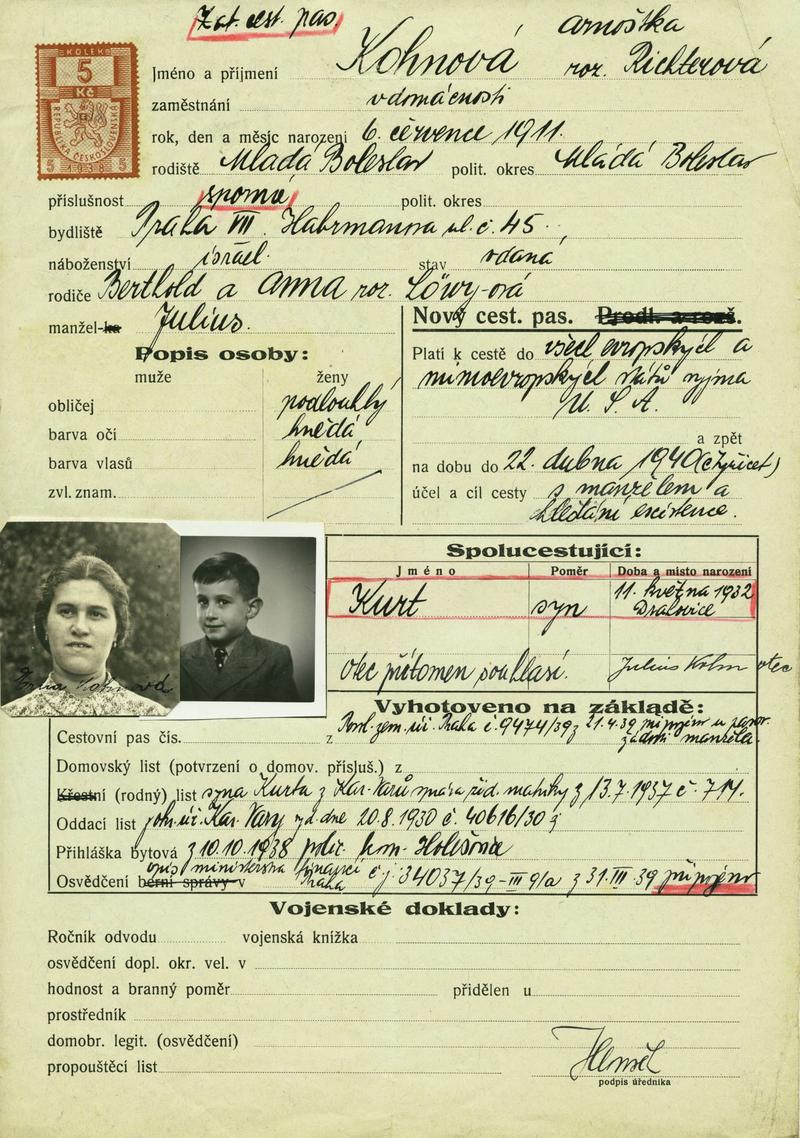 Zat. cest. pas.
KOLEK
5
Kč
REPUBLIKA ČESKOSLOVENSKÁ
5 1938 5
Jméno a příjmení Kohnová Arnoštka
roz. Richterová
zaměstnání v domácnosti
rok, den a měsíc narození 6. července 1911.
rodiště Mladá Boleslav polit. okres Mladá Boleslav
příslušnost sporná polit. okres
bydliště Praha VII. Habrmanova ul. č. 45.
náboženství israel. stav vdaná
rodiče Berthold a Anna roz. Löwy-ová
manžel-ka Julius.
Nový cest. pas. Prodl. a rozš.
Popis osoby:
muže ženy
obličej podlouhlý
barva očí hnědá
barva vlasů hnědá
zvl. znam.
Platí k cestě do všech evropských a
mimoevropských států vyjma
U. S. A.
a zpět
na dobu do 22. dubna 1940 (čtyřicet)
účel a cíl cesty s manželem a
hledání existence.
Spolucestující:
Jméno Poměr Doba a místo narození
Kurt syn 11. května 1932
Dralovice
otec přítomen souhlasí. Julius Kohn otec
Kohnová
Vyhotoveno na základě:
Cestovní pas čís. z Praha č. 9474/39 z 21.4.39 připojen u
žádosti manžela.
Domovský list (potvrzení o domov. přísluš.) z
Křestní (rodný) list syna Kurta z Kar. Varů matriky z 13.7.1937 č. 714.
Oddací list Kar. Vary ze dne 20.8.1930 č. 40616/30
Přihláška bytová z 10.10.1938 polic. kom. Holešovice
Osvědčení berní správy v opis ministerstva financí Praha č.j. 34037/39-III 9/a z 31.III.39 připojeno
Vojenské doklady:
Ročník odvodu vojenská knížka
osvědčení dopl. okr. vel. v
hodnost a branný poměr přidělen u
prostředník
domobr. legit. (osvědčení)
propouštěcí list
podpis úředníka